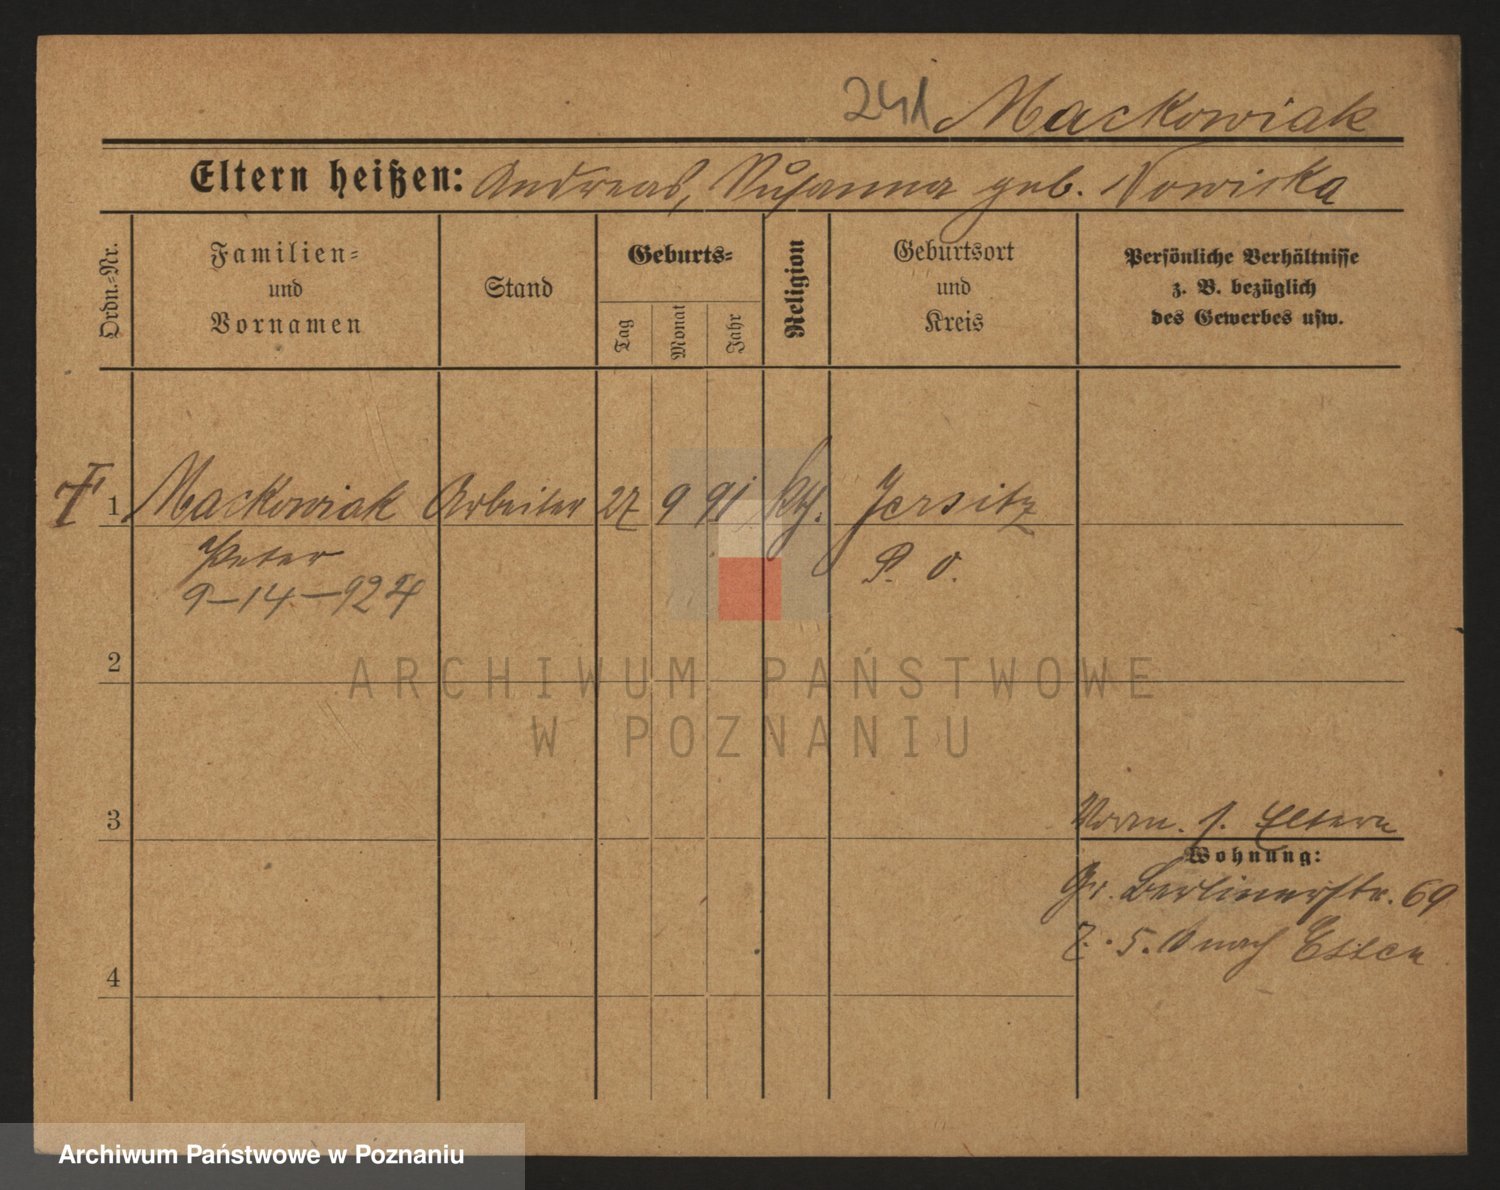 241 Mackowiak
Eltern heißen: Andreas, Susanna geb. Nowicka
Ordn.-Nr.
Familien-
und
Vornamen
Stand
Geburts-
Tag
Monat
Jahr
Religion
Geburtsort
und
Kreis
Persönliche Verhältnisse
z. B. bezüglich
des Gewerbes usw.
1 Mackowiak Arbeiter 27 9 91 kth. Jersitz
Peter P. O.
9-14-92
2
ARCHIWUM PAŃSTWOWE
W POZNANIU
3
Vorm. s. Eltern
Wohnung:
Gr. Berlinerstr. 69
nach Essen
4
Archiwum Państwowe w Poznaniu